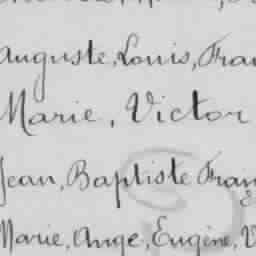 Auguste, Louis, Fran
Marie, Victor
Jean, Baptiste Franç
Marie, Ange, Eugène, V